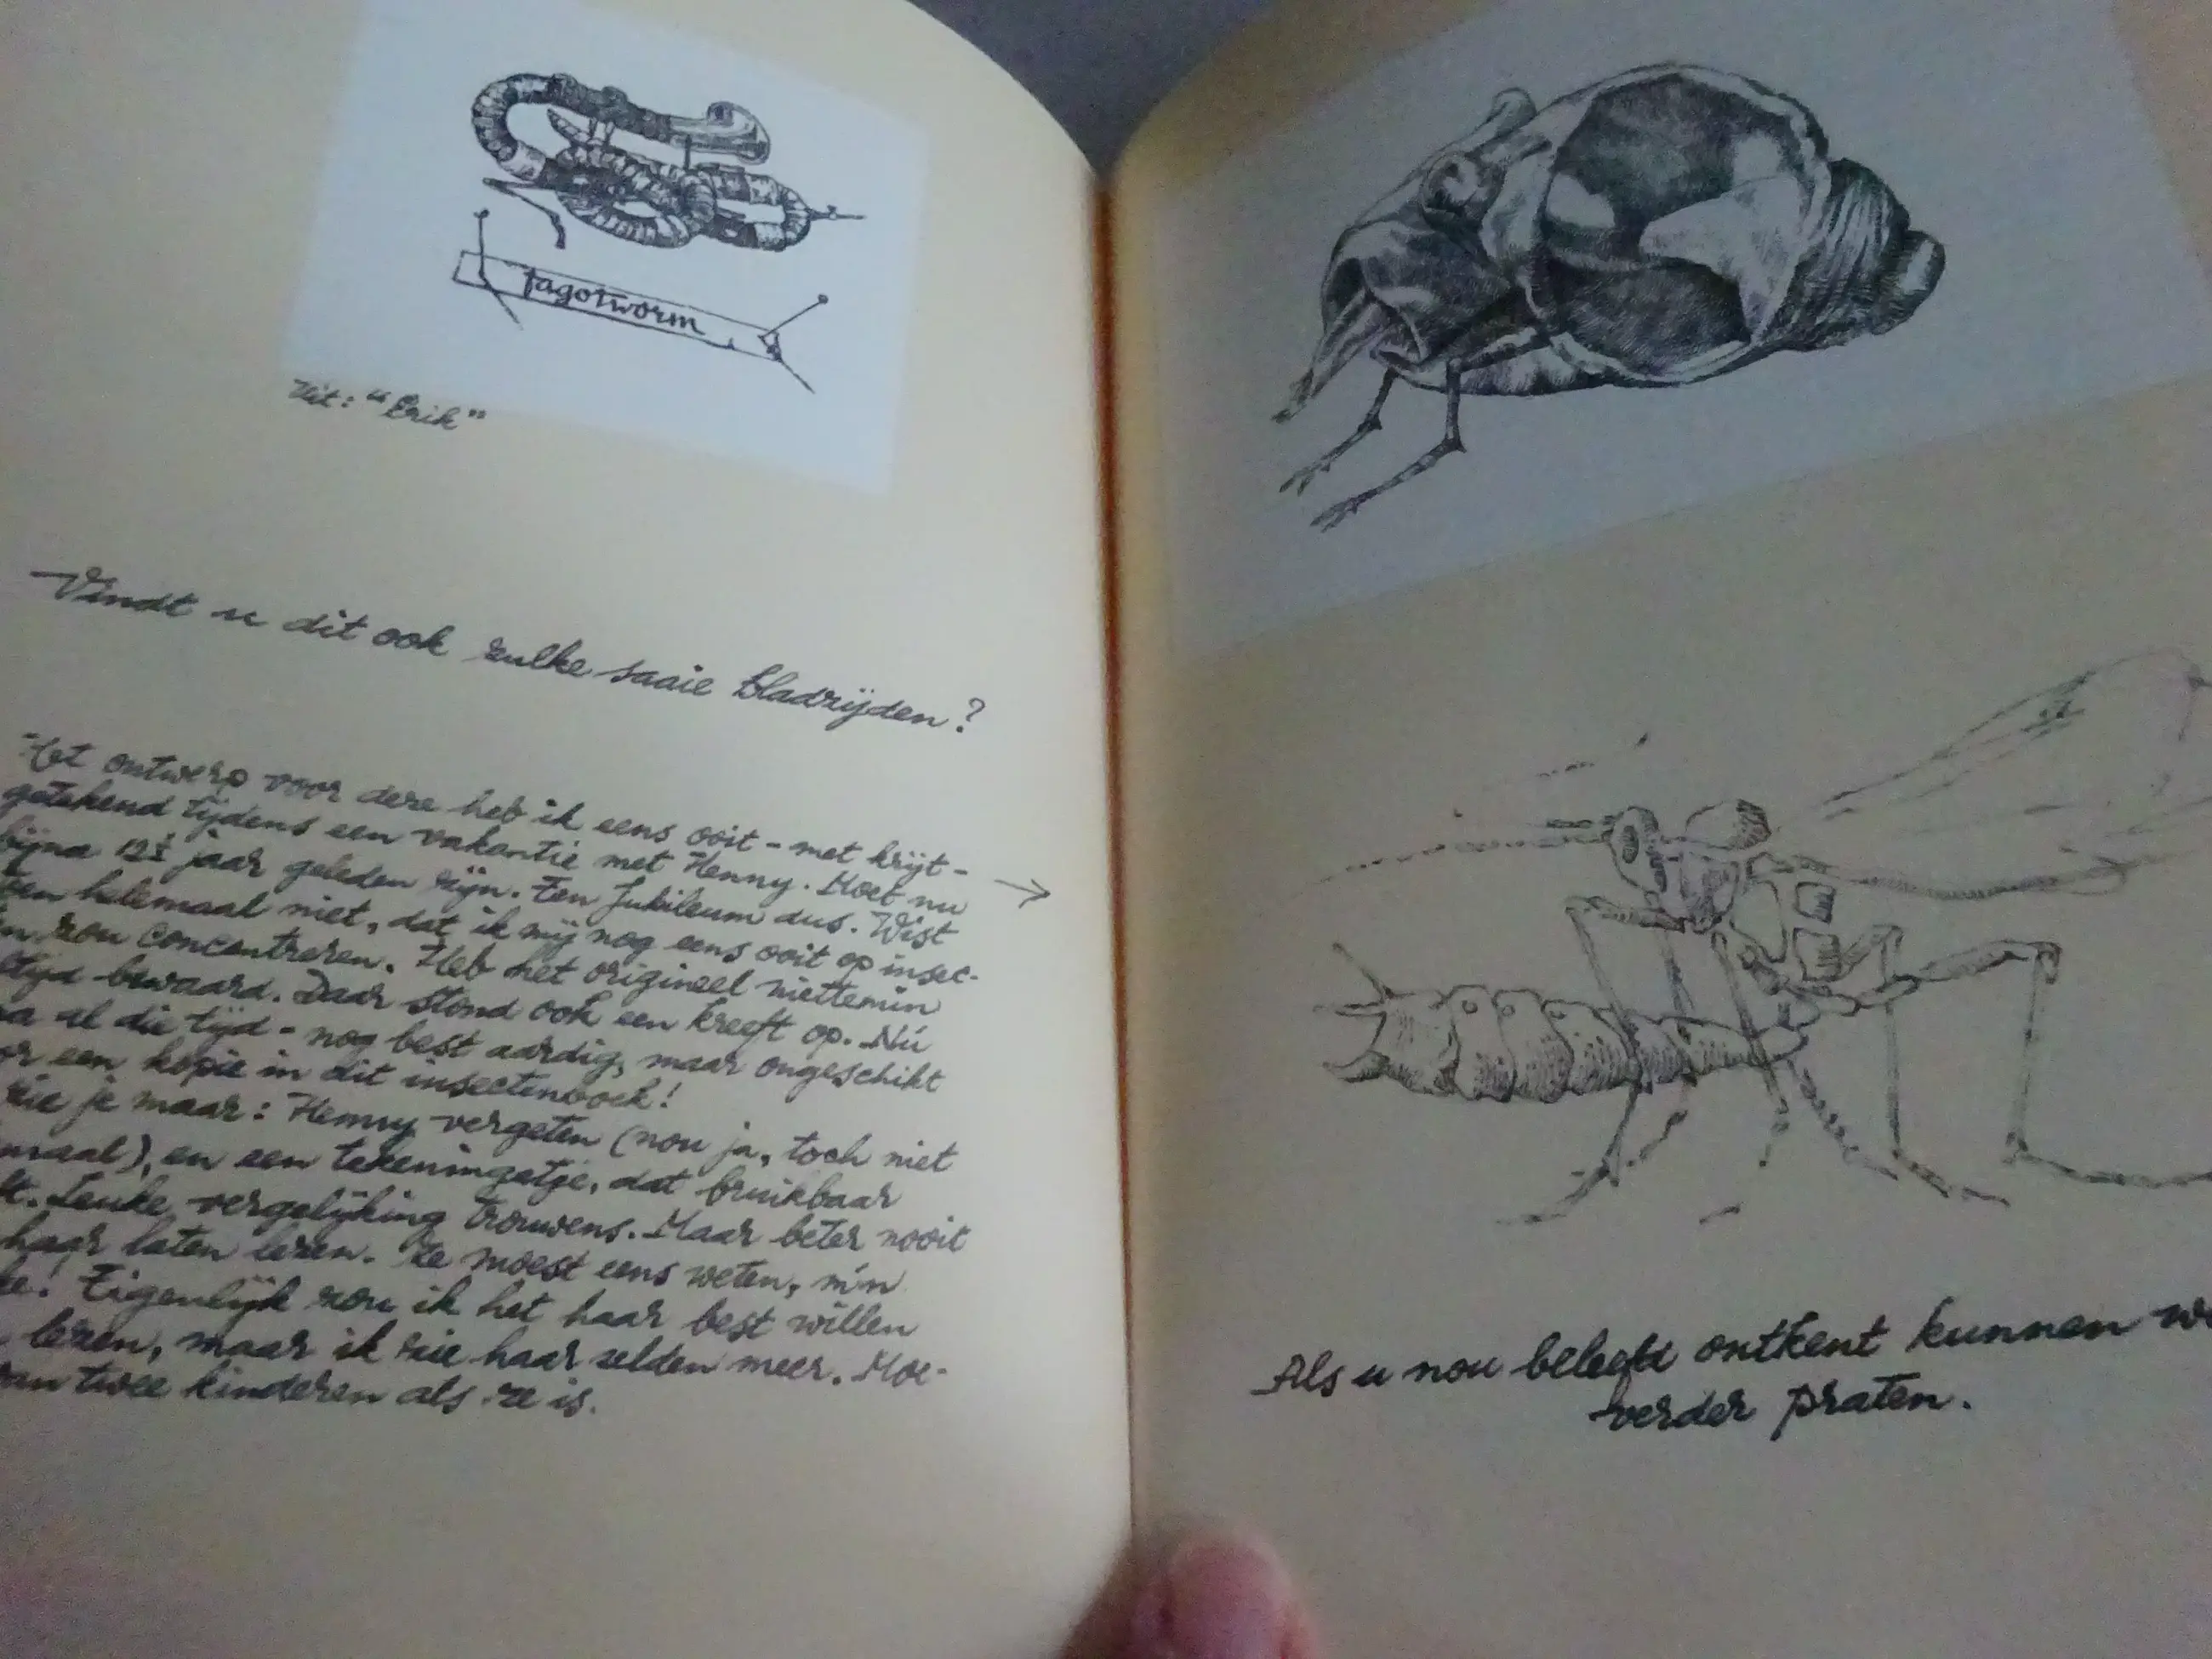 fagotworm
Uit: "Erik"
Vindt u dit ook zulke saaie bladzijden?
Het ontwerp voor deze heb ik eens ooit - met krijt -
getekend tijdens een vakantie met Henny. Moet nu
bijna 12½ jaar geleden zijn. Een Jubileum dus. Wist
helemaal niet, dat ik mij nog eens ooit op insec-
zou concentreren. Heb het origineel niettemin
bewaard. Daar stond ook een kreeft op. Nú
al die tijd - nog best aardig, maar ongeschikt
een kopie in dit insectenboek!
zie je maar: Henny vergeten (nou ja, toch niet
en een tekeningetje, dat bruikbaar
Leuke vergelijking trouwens. Maar beter nooit
haar laten lezen. Ze moest eens weten, m'n
Eigenlijk zou ik het haar best willen
lezen, maar ik zie haar zelden meer. Moe-
twee kinderen als ze is.
Als u nou beleefd ontkent kunnen we
verder praten.